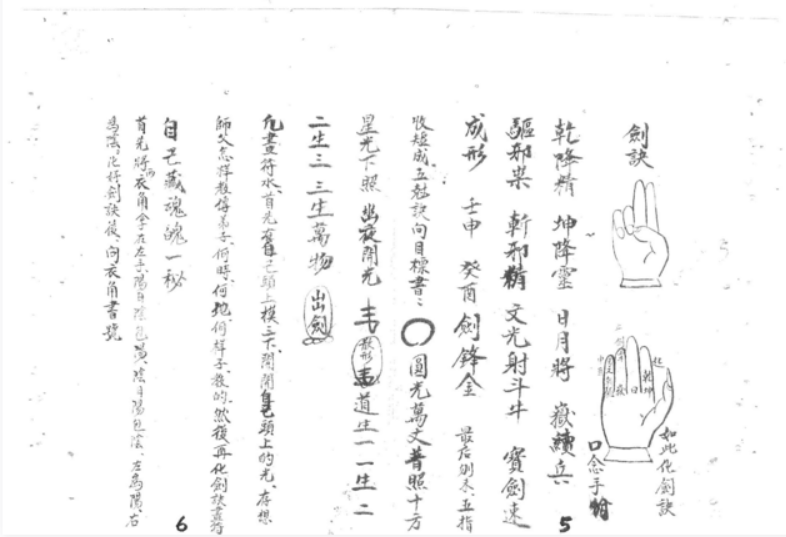 劍訣
如此化劍訣
口念手掐
乾降精 坤降靈 日月將 嶽瀆兵
驅邪祟 斬邪精 文光射斗牛 寶劍速
成形 壬申 癸酉 劍鋒金 最后 五指
收短成 訣向目標書：○圓光萬丈普照十方
星光下照 幽夜開光 道生一 一生二
二生三 三生萬物 出劍
凡畫符水、首先在自己頭上摸三下、開開自己頭上的光、存想
師父怎樣教傳弟子、何時何地、何樣子教的、然後再化劍訣畫符
5
自己藏魂魄一秘
首先將衣角拿在左手、陽日陰包陽、陰日陽包陰、左為陽、右
為陰。化好劍訣後、向衣角書號
6